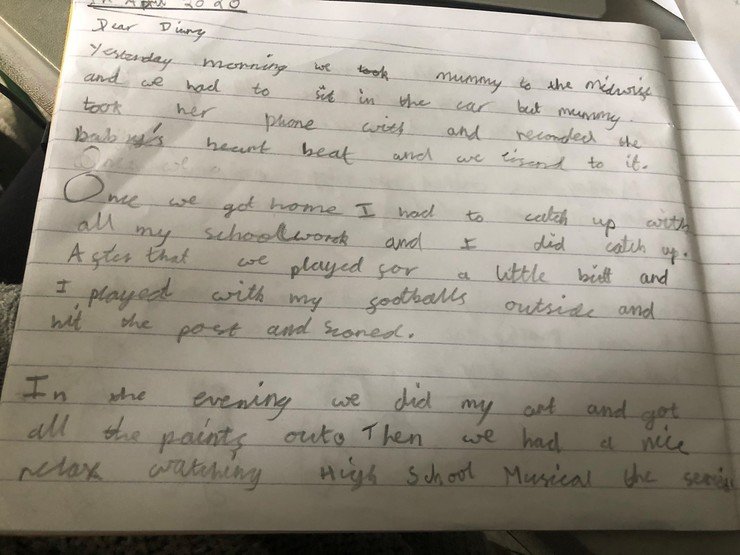 April 2020
Dear Diary
Yesterday morning we took mummy to the midwife
and we had to sit in the car but mummy
took her phone with and recorded the
baby's heart beat and we lisend to it.
Once we got home I had to catch up with
all my schoolwork and I did catch up.
After that we played for a little bitt and
I played with my footballs outside and
hit the post and scored.
In the evening we did my art and got
all the paints outo Then we had a nice
relax watching High School Musical the series